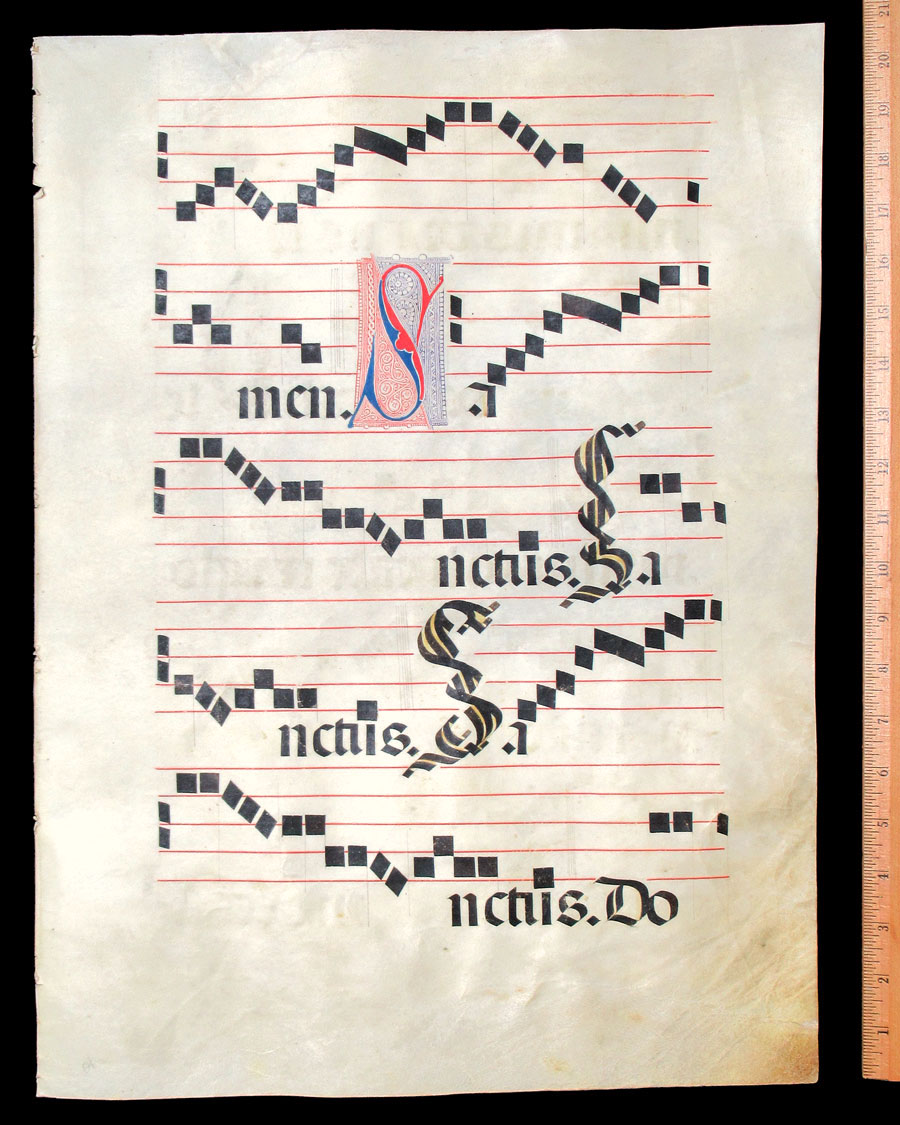 men. Sa
nctus. Sa
nctus. Sa
nctus. Do
21
20
19
18
17
16
15
14
13
12
11
10
9
8
7
6
5
4
3
2
1